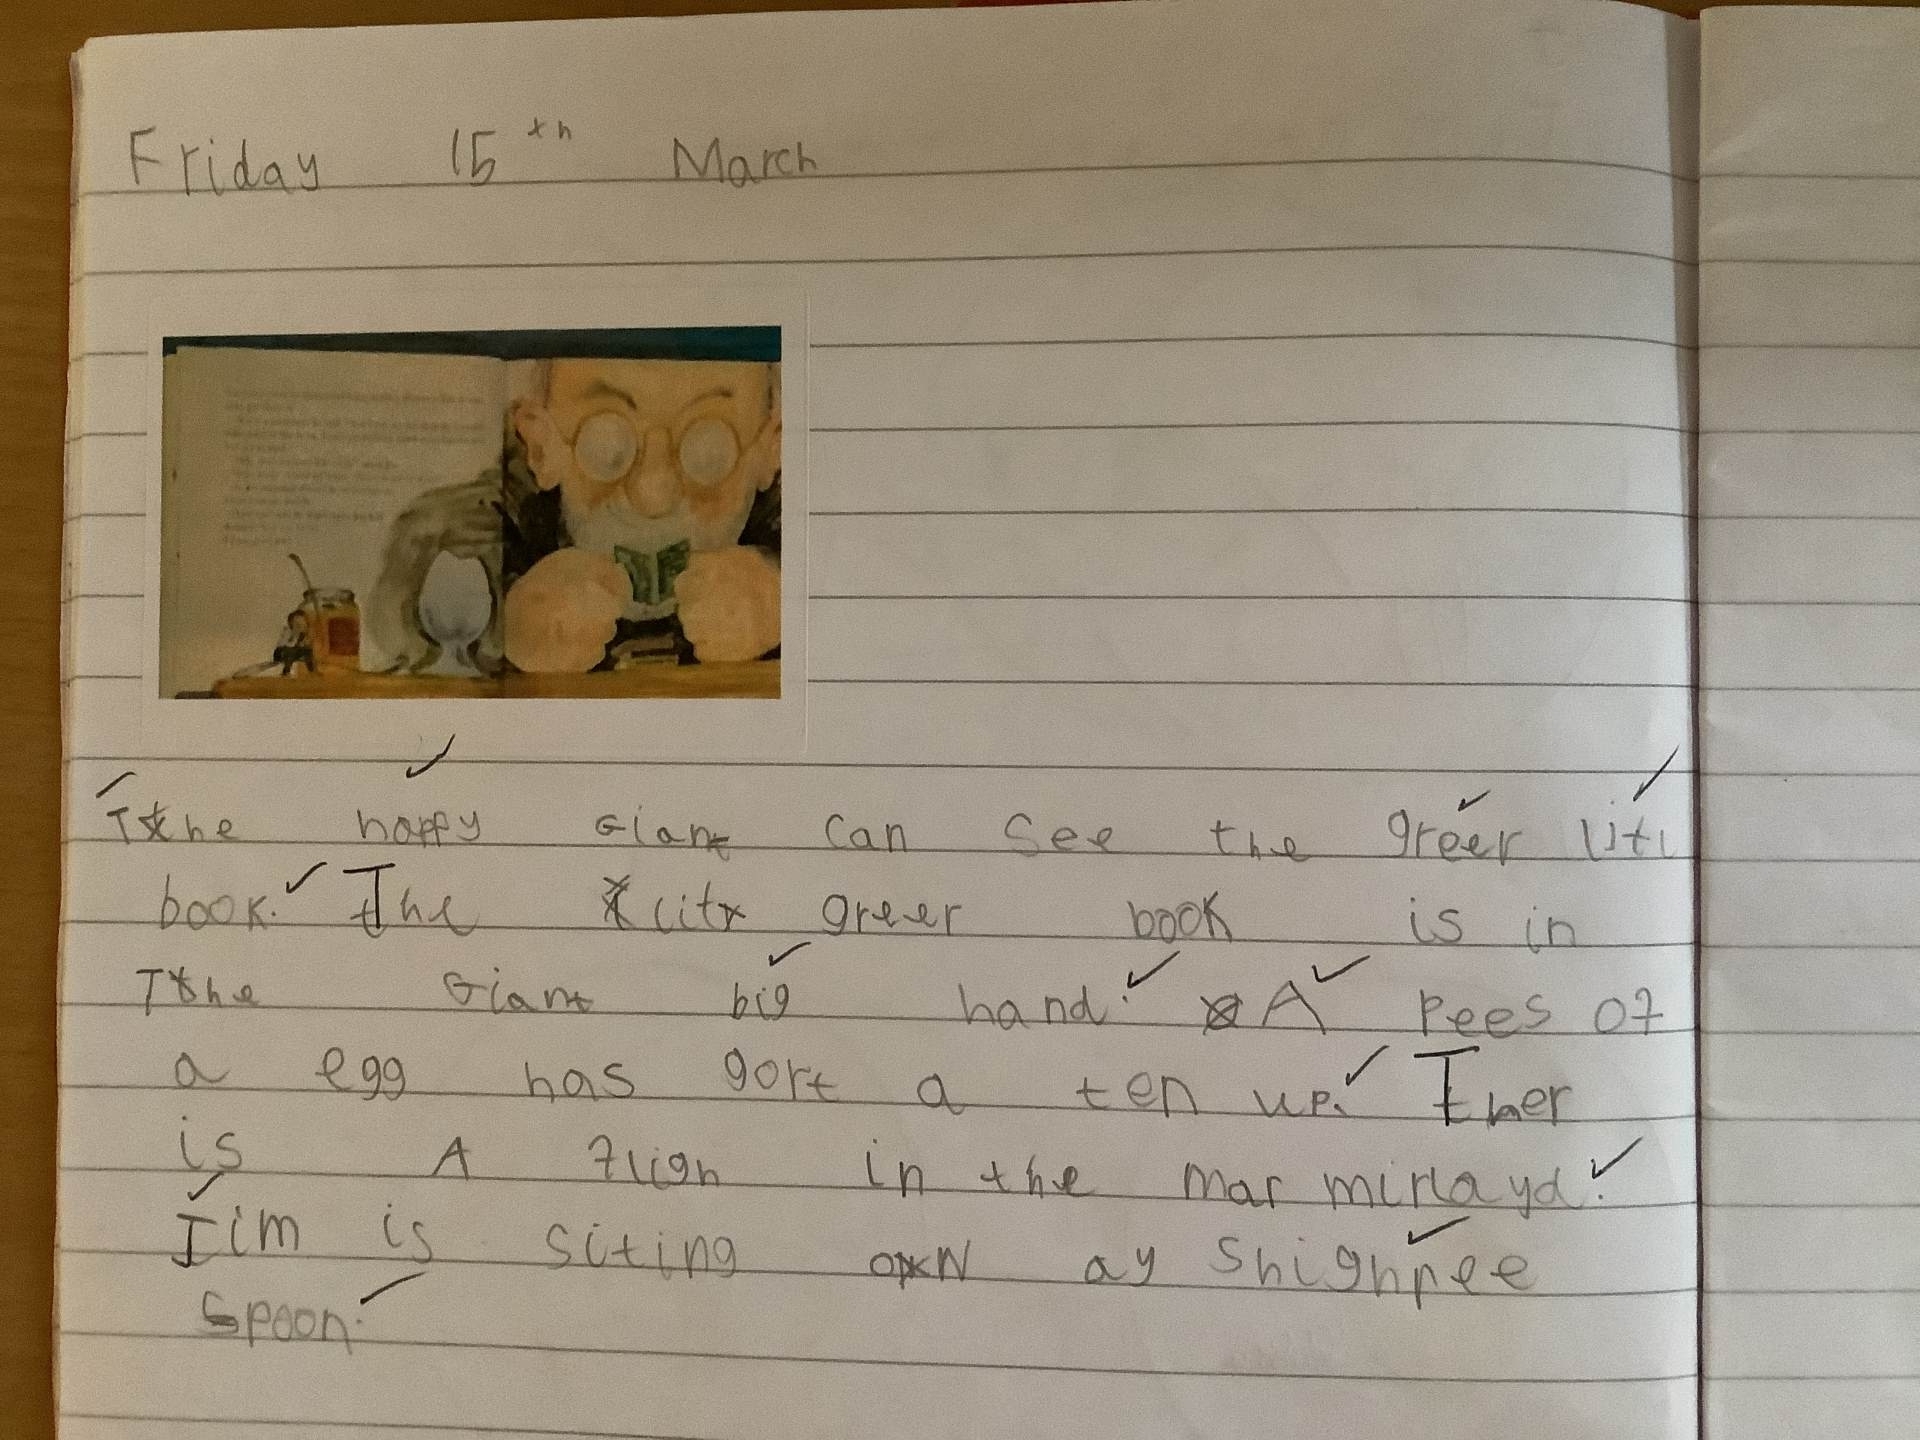 Friday 15th March
The happy Giant can see the greer litl
book. The litr greer book is in
The Giant big hand. A Pees of
a egg has gort a ten up. Ther
is A fligh in the mar mirlayd.
Jim is siting oN ay Shighnee
Spoon.